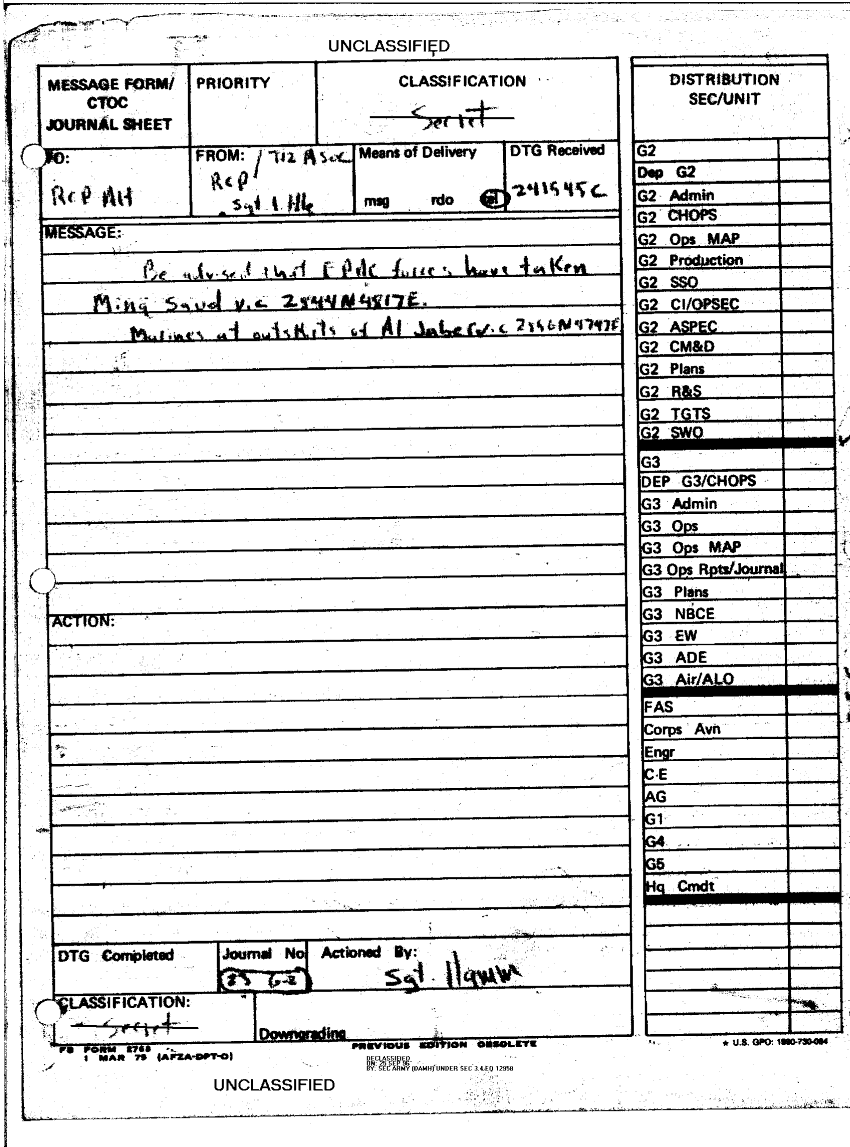 UNCLASSIFIED
MESSAGE FORM/
CTOC
JOURNAL SHEET
PRIORITY
CLASSIFICATION
Secret
DISTRIBUTION
SEC/UNIT
TO:
RCP AH
FROM: / 712 ASOC
RCP
Sgt
Means of Delivery
msg rdo
DTG Received
241545C
MESSAGE:
Be advised that EPAC forces have taken
Mina Saud vic 2844N4817E.
Marines at outskirts of Al Jaber vic 2856N4747E
ACTION:
G2
Dep G2
G2 Admin
G2 CHOPS
G2 Ops MAP
G2 Production
G2 SSO
G2 CI/OPSEC
G2 ASPEC
G2 CM&D
G2 Plans
G2 R&S
G2 TGTS
G2 SWO
G3
DEP G3/CHOPS
G3 Admin
G3 Ops
G3 Ops MAP
G3 Ops Rpts/Journal
G3 Plans
G3 NBCE
G3 EW
G3 ADE
G3 Air/ALO
FAS
Corps Avn
Engr
C-E
AG
G1
G4
G5
Hq Cmdt
DTG Completed
Journal No
83 G-2
Actioned By:
Sgt. Hamm
CLASSIFICATION:
Secret
Downgrading
FB FORM 2765
1 MAR 75 (AFZA-DPT-O)
PREVIOUS EDITION OBSOLETE
★ U.S. GPO: 1990-730-084
DECLASSIFIED
BY: SEC ARMY (DAMH) UNDER SEC 3.4 EO 12958
UNCLASSIFIED